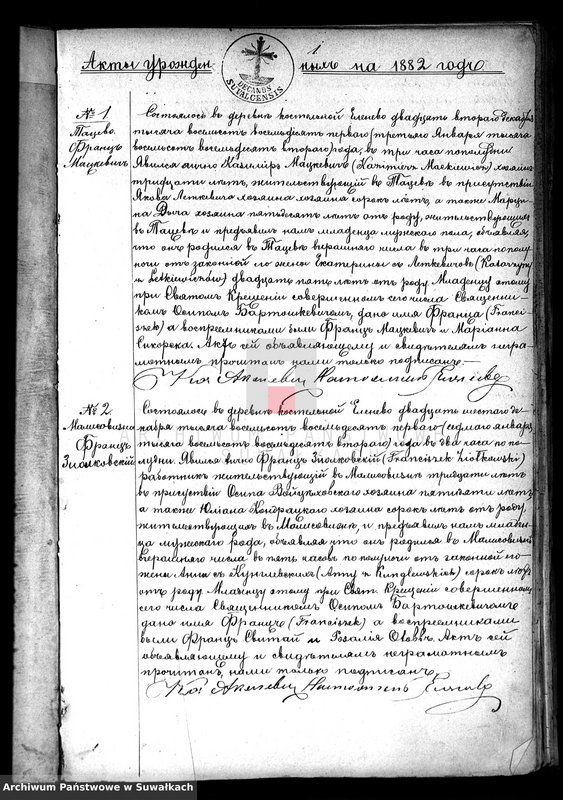 1
Акты урожден ныхъ на 1882 годъ
DECANUS SUVALCENSIS
№ 1
Тацево.
Францъ
Мацкевичъ
Состоялось въ деревнѣ костельной Еленево двадцать втораго Декабря
тысяча восемьсотъ восемьдесятъ перваго (третьяго Января тысяча
восемьсотъ восемьдесятъ втораго) года, въ три часа пополудни
Явился лично Казимиръ Мацкевичъ (Kazimierz Mackiewicz) хозяинъ
тридцати лѣтъ, жительствующій въ Тацевѣ въ присутствіи
Якова Леткевича хозяина сорокъ лѣтъ, а также Марци-
на Дыча хозяина пятьдесятъ лѣтъ отъ роду, жительствующихъ
въ Тацевѣ и предъявилъ намъ младенца мужеска пола, объявляя,
что онъ родился въ Тацевѣ вчерашняго числа въ три часа по полу-
ночи отъ законной его жены Екатерины съ Леткевичовъ (Katarzyny
z Letkiewiczów) двадцать пять лѣтъ отъ роду. Младенцу этому
при Святомъ Крещеніи совершенномъ сего числа Священни-
комъ Осипомъ Бартошкевичемъ, дано имя Франца (Franci-
szek) а воспреемниками были Францъ Мацкевичъ и Маріанна
Сикорска. Актъ сей объявляющему и свидѣтелямъ негра-
мотнымъ прочитанъ нами только подписанъ.—
№ 2
Малесовизна
Францъ
Зюлковскій
Состоялось въ деревнѣ костельной Еленево двадцать шестаго де-
кабря тысяча восемьсотъ восемьдесятъ перваго (седмаго января
тысяча восемьсотъ восемьдесятъ втораго) года въ два часа по по-
лудни. Явился лично Францъ Зюлковскій (Franciszek Ziołkowski)
работникъ жительствующій въ Малесовизнѣ тридцати лѣтъ
въ присутствіи Осипа Войцѣховскаго хозяина пятидесяти лѣтъ
а также Юліана Кондрацкаго хозяина сорокъ лѣтъ отъ роду
жительствующихъ въ Малесовизнѣ, и предъявилъ намъ младен-
ца мужескаго рода, объявляя что онъ родился въ Малесовизнѣ
вчерашняго числа въ пять часовъ по полуночи отъ законной его
жены Анны съ (Anny z сорокъ лѣтъ
отъ роду. Младенцу этому при Свят. Крещеніи совершенномъ
сего числа Священникомъ Осипомъ Бартошкевичемъ
дано имя Францъ (Franciszek) а воспреемниками
были Францъ Свитай и Розалія Актъ сей
объявляющему и свидѣтелямъ неграмотнымъ
прочитанъ, нами только подписанъ
Archiwum Państwowe w Suwałkach